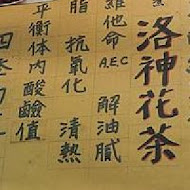 洛神花茶
維他命
A.E.C
解油膩
脂
抗氧化
清熱
平衡体内酸鹼值